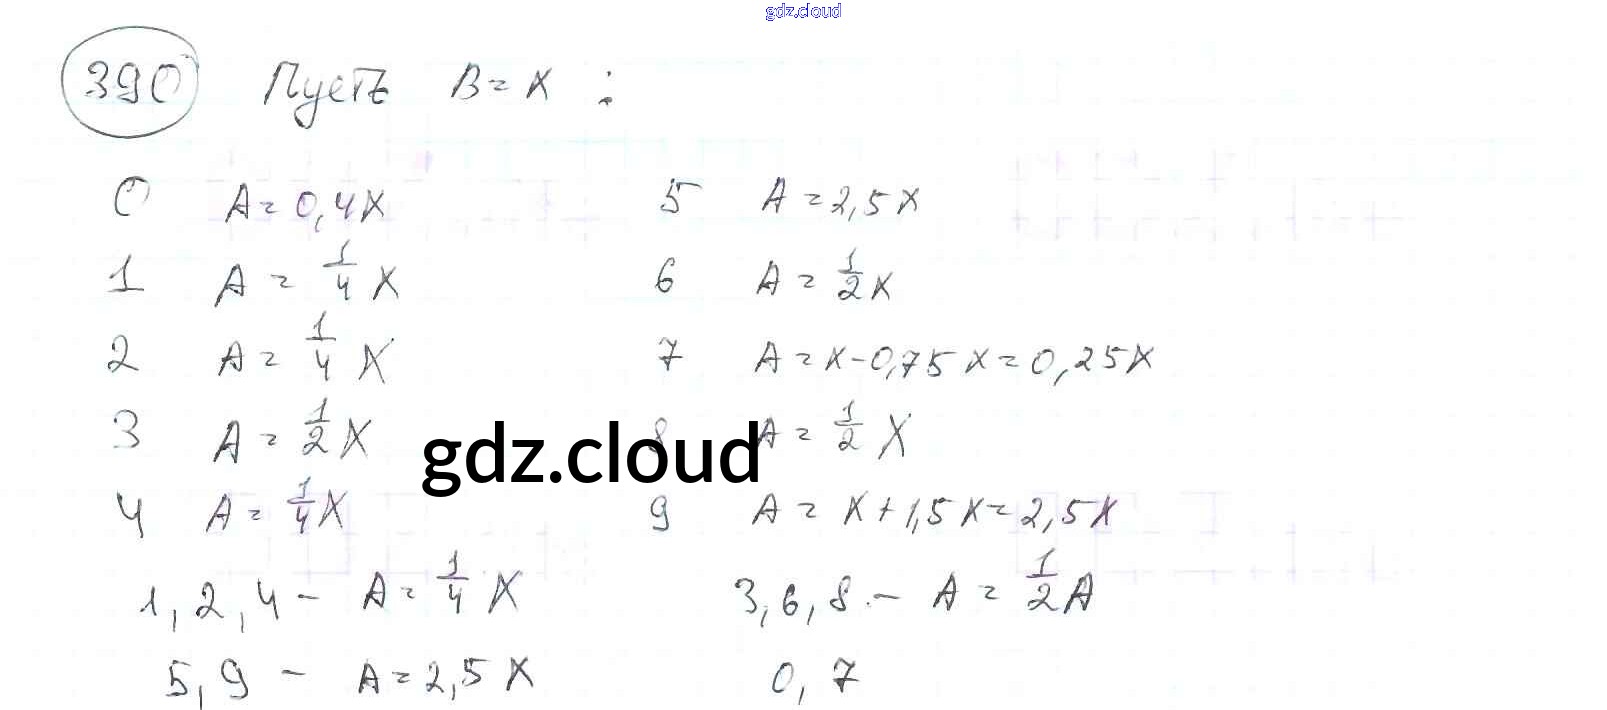 gdz.cloud
390 Пусть B = x :
0 A = 0,4x 5 A = 2,5x
1 A = 1/4 x 6 A = 1/2 x
2 A = 1/4 x 7 A = x - 0,75x = 0,25x
3 A = 1/2 x gdz.cloud 8 A = 1/2 x
4 A = 1/4 x 9 A = x + 1,5x = 2,5x
1, 2, 4 - A = 1/4 x 3, 6, 8. - A = 1/2 A
5, 9 - A = 2,5x 0, 7